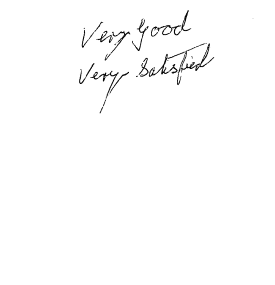 Very Good
Very Satisfied